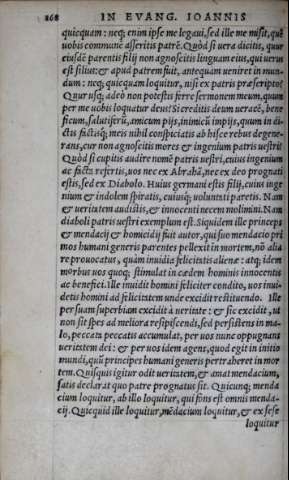 268 IN EVANG. IOANNIS
quicquam: neq; enim ipse me legaui, sed ille me misit, quē
uobis communē asseritis patrē. Quòd si uera dicitis, quur
eiusdē parentis filij non agnoscitis linguam eius, qui uerus
est filius: & apud patrem fuit, antequam ueniret in mun-
dum: neq; quicquam loquitur, nisi ex patris præscripto?
Quur usq; adeò non potestis ferre sermonem meum, quum
per me uobis loquatur deus? Si creditis deum ueracē, bene
ficum, salutiferū, amicum pijs, inimicū impijs, quum in di-
ctis factisq́; meis nihil conspiciatis ab hisce rebus degene-
rans, cur non agnoscitis mores & ingenium patris uestri?
Quòd si cupitis audire nomē patris uestri, cuius ingenium
ac facta refertis, uos nec ex Abrahā, nec ex deo prognati
estis, sed ex Diabolo. Huius germani estis filij, cuius inge
nium & indolem spiratis, cuiusq́; uoluntati paretis. Nam
& ueritatem audistis, & innocenti necem molimini. Nam
diaboli patris uestri exemplum est. Siquidem ille princeps
& mendacij & homicidij fuit autor, qui suo mendacio pri
mos humani generis parentes pellexit in mortem, nō alia
re prouocatus, quàm inuidia felicitatis alienæ: atq; idem
morbus uos quoq; stimulat in cædem hominis innocentis
ac benefici. Ille inuidit homini feliciter condito, uos inui-
detis homini ad felicitatem unde excidit restituendo. Ille
per suam superbiam excidit à ueritate: & sic excidit, ut
non sit spes ad meliora resipiscendi, sed persistens in ma-
lo, peccata peccatis accumulat, per uos nunc oppugnans
ueritatem dei: & per uos idem agens, quod egit in initio
mundi, quū principes humani generis pertraheret in mor
tem. Quisquis igitur odit ueritatem, & amat mendacium,
satis declarat quo patre prognatus sit. Quicunq; menda
cium loquitur, ab illo loquitur, qui fons est omnis menda-
cij. Quicquid ille loquitur, mēdacium loquitur, & ex sese
loquitur